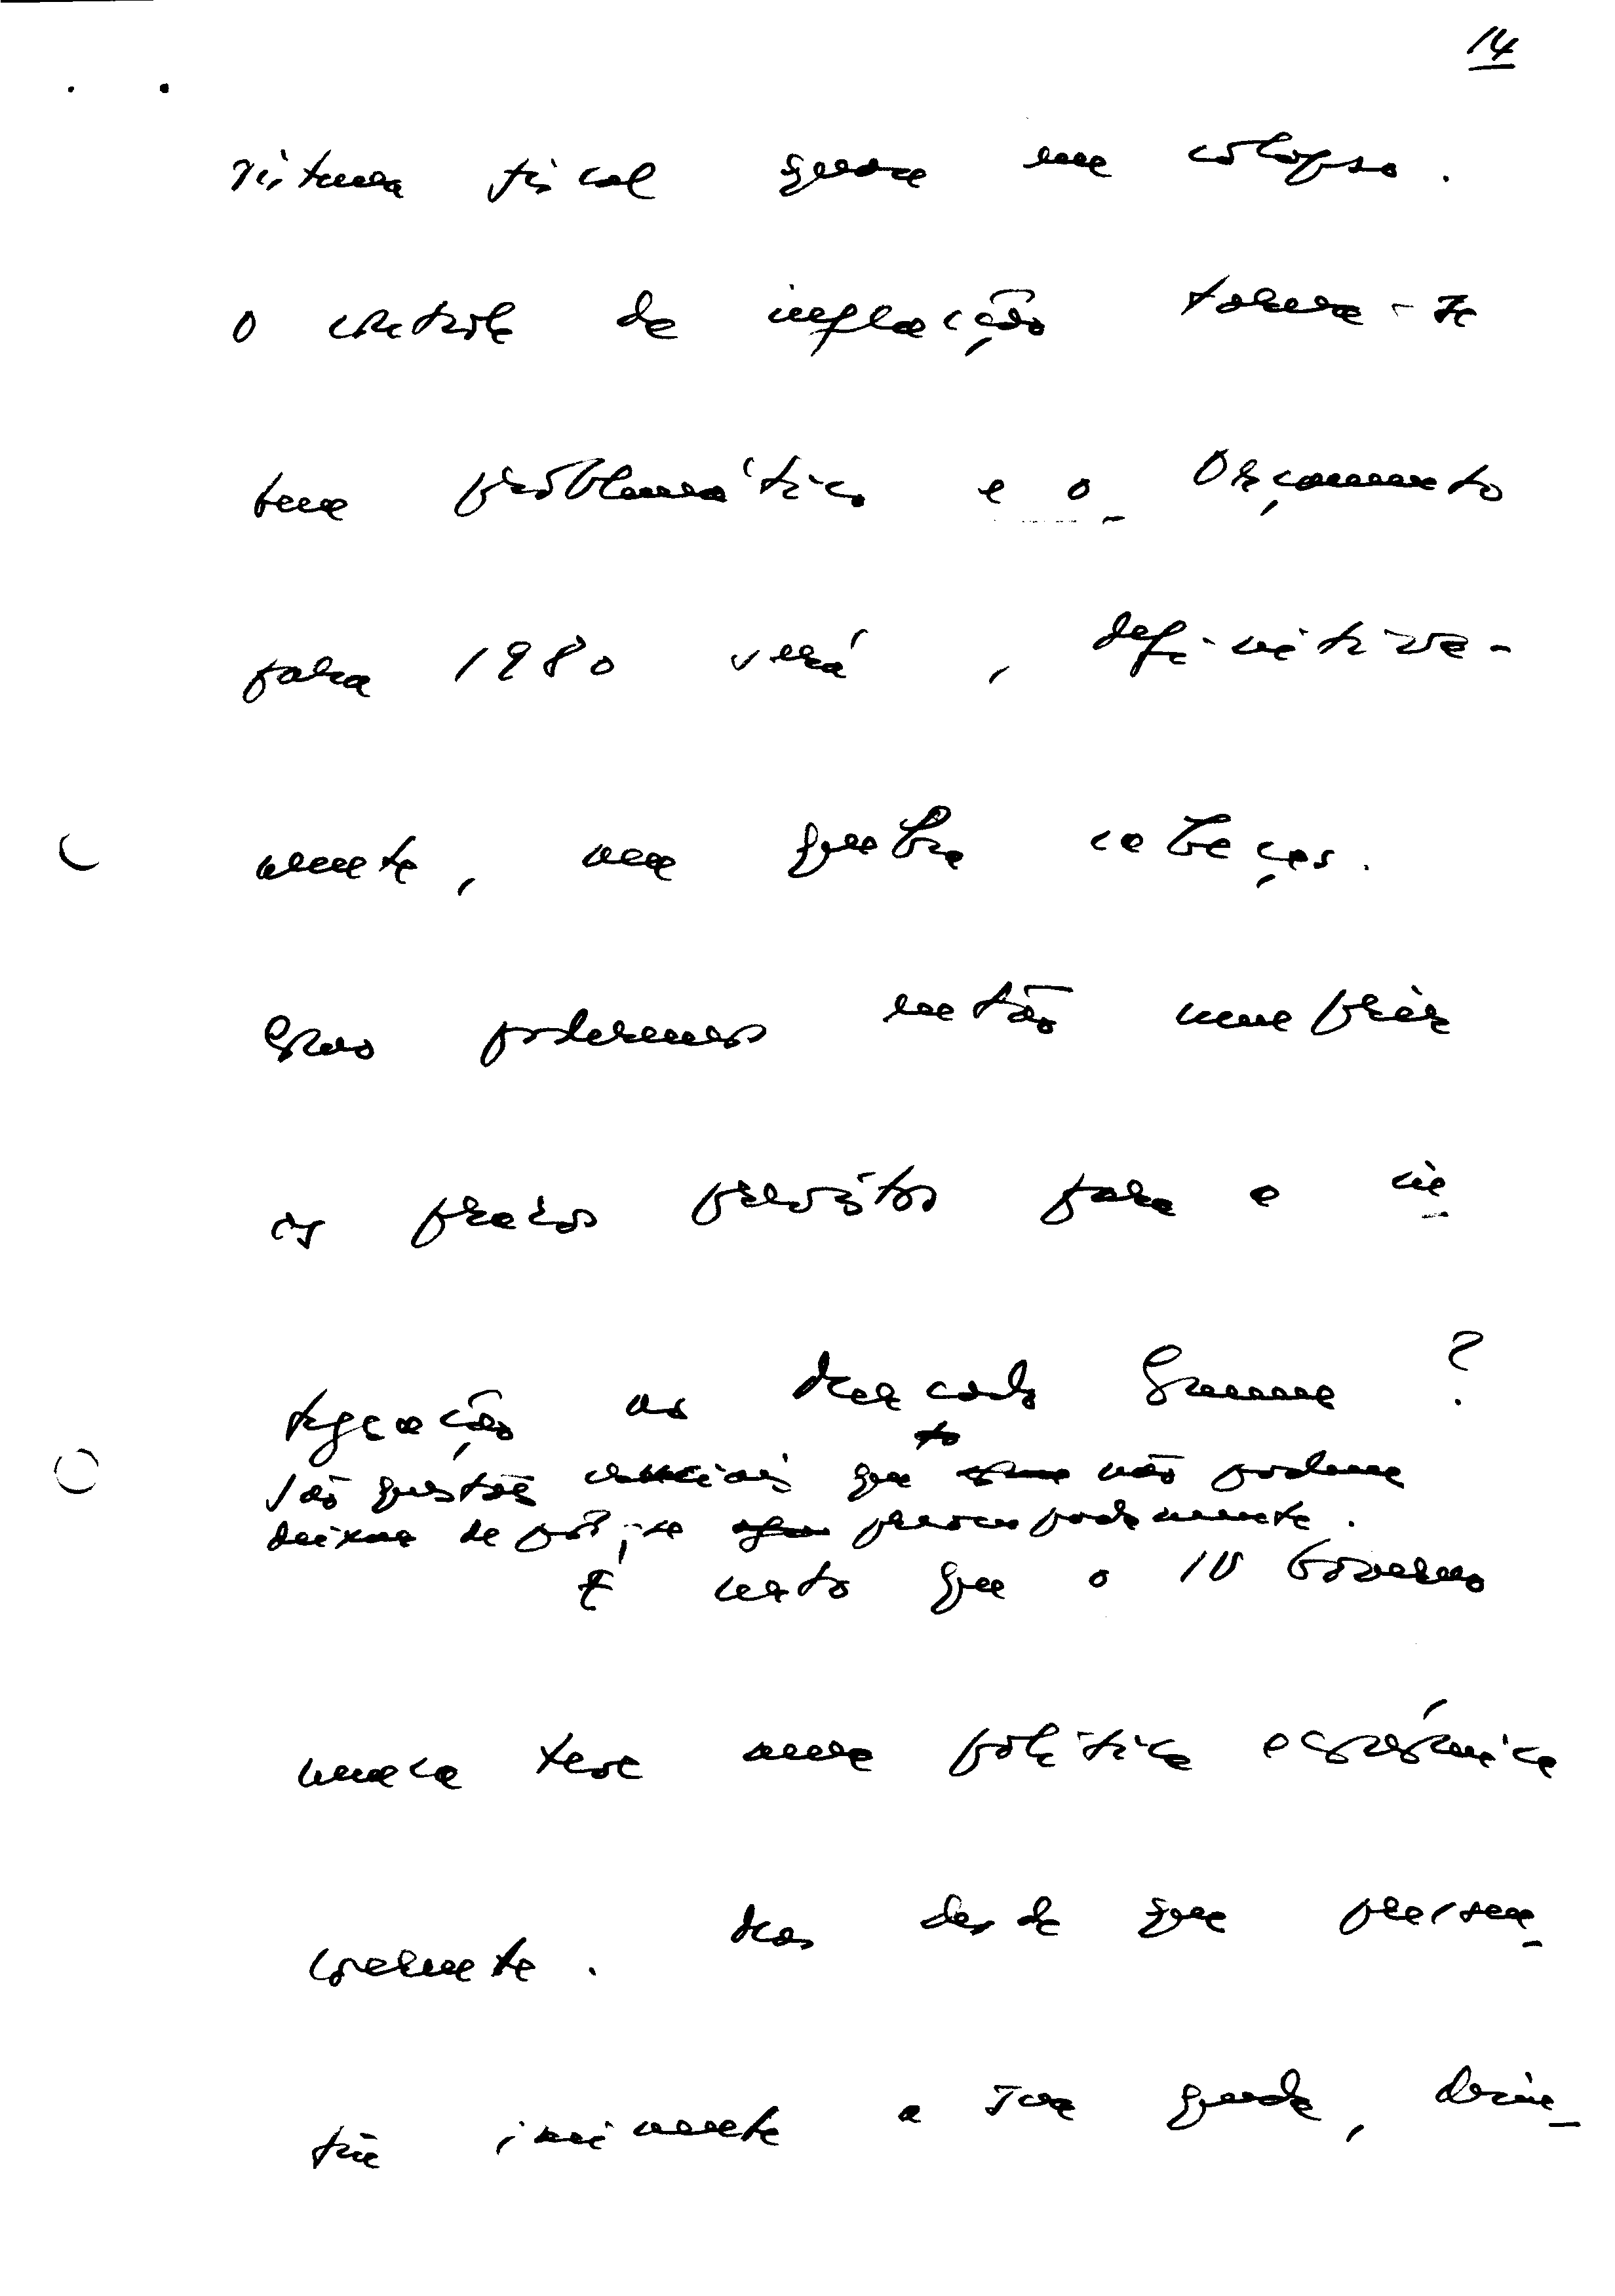 14
sistema fiscal quase em colapso.
O controle da inflação torna-se
bem problemático e o Orçamento
para 1980 será, definitiva-
mente, um quebra cabeças.
Como poderemos então cumprir
os prazos previstos para a in-
tegração no Mercado Comum?
São questões cruciais que não podem
deixar de pôr-se preocupadamente.
É certo que o IV Governo
nunca teve uma política económica
coerente. Mas desde que pressen-
tiu iminente a sua queda,